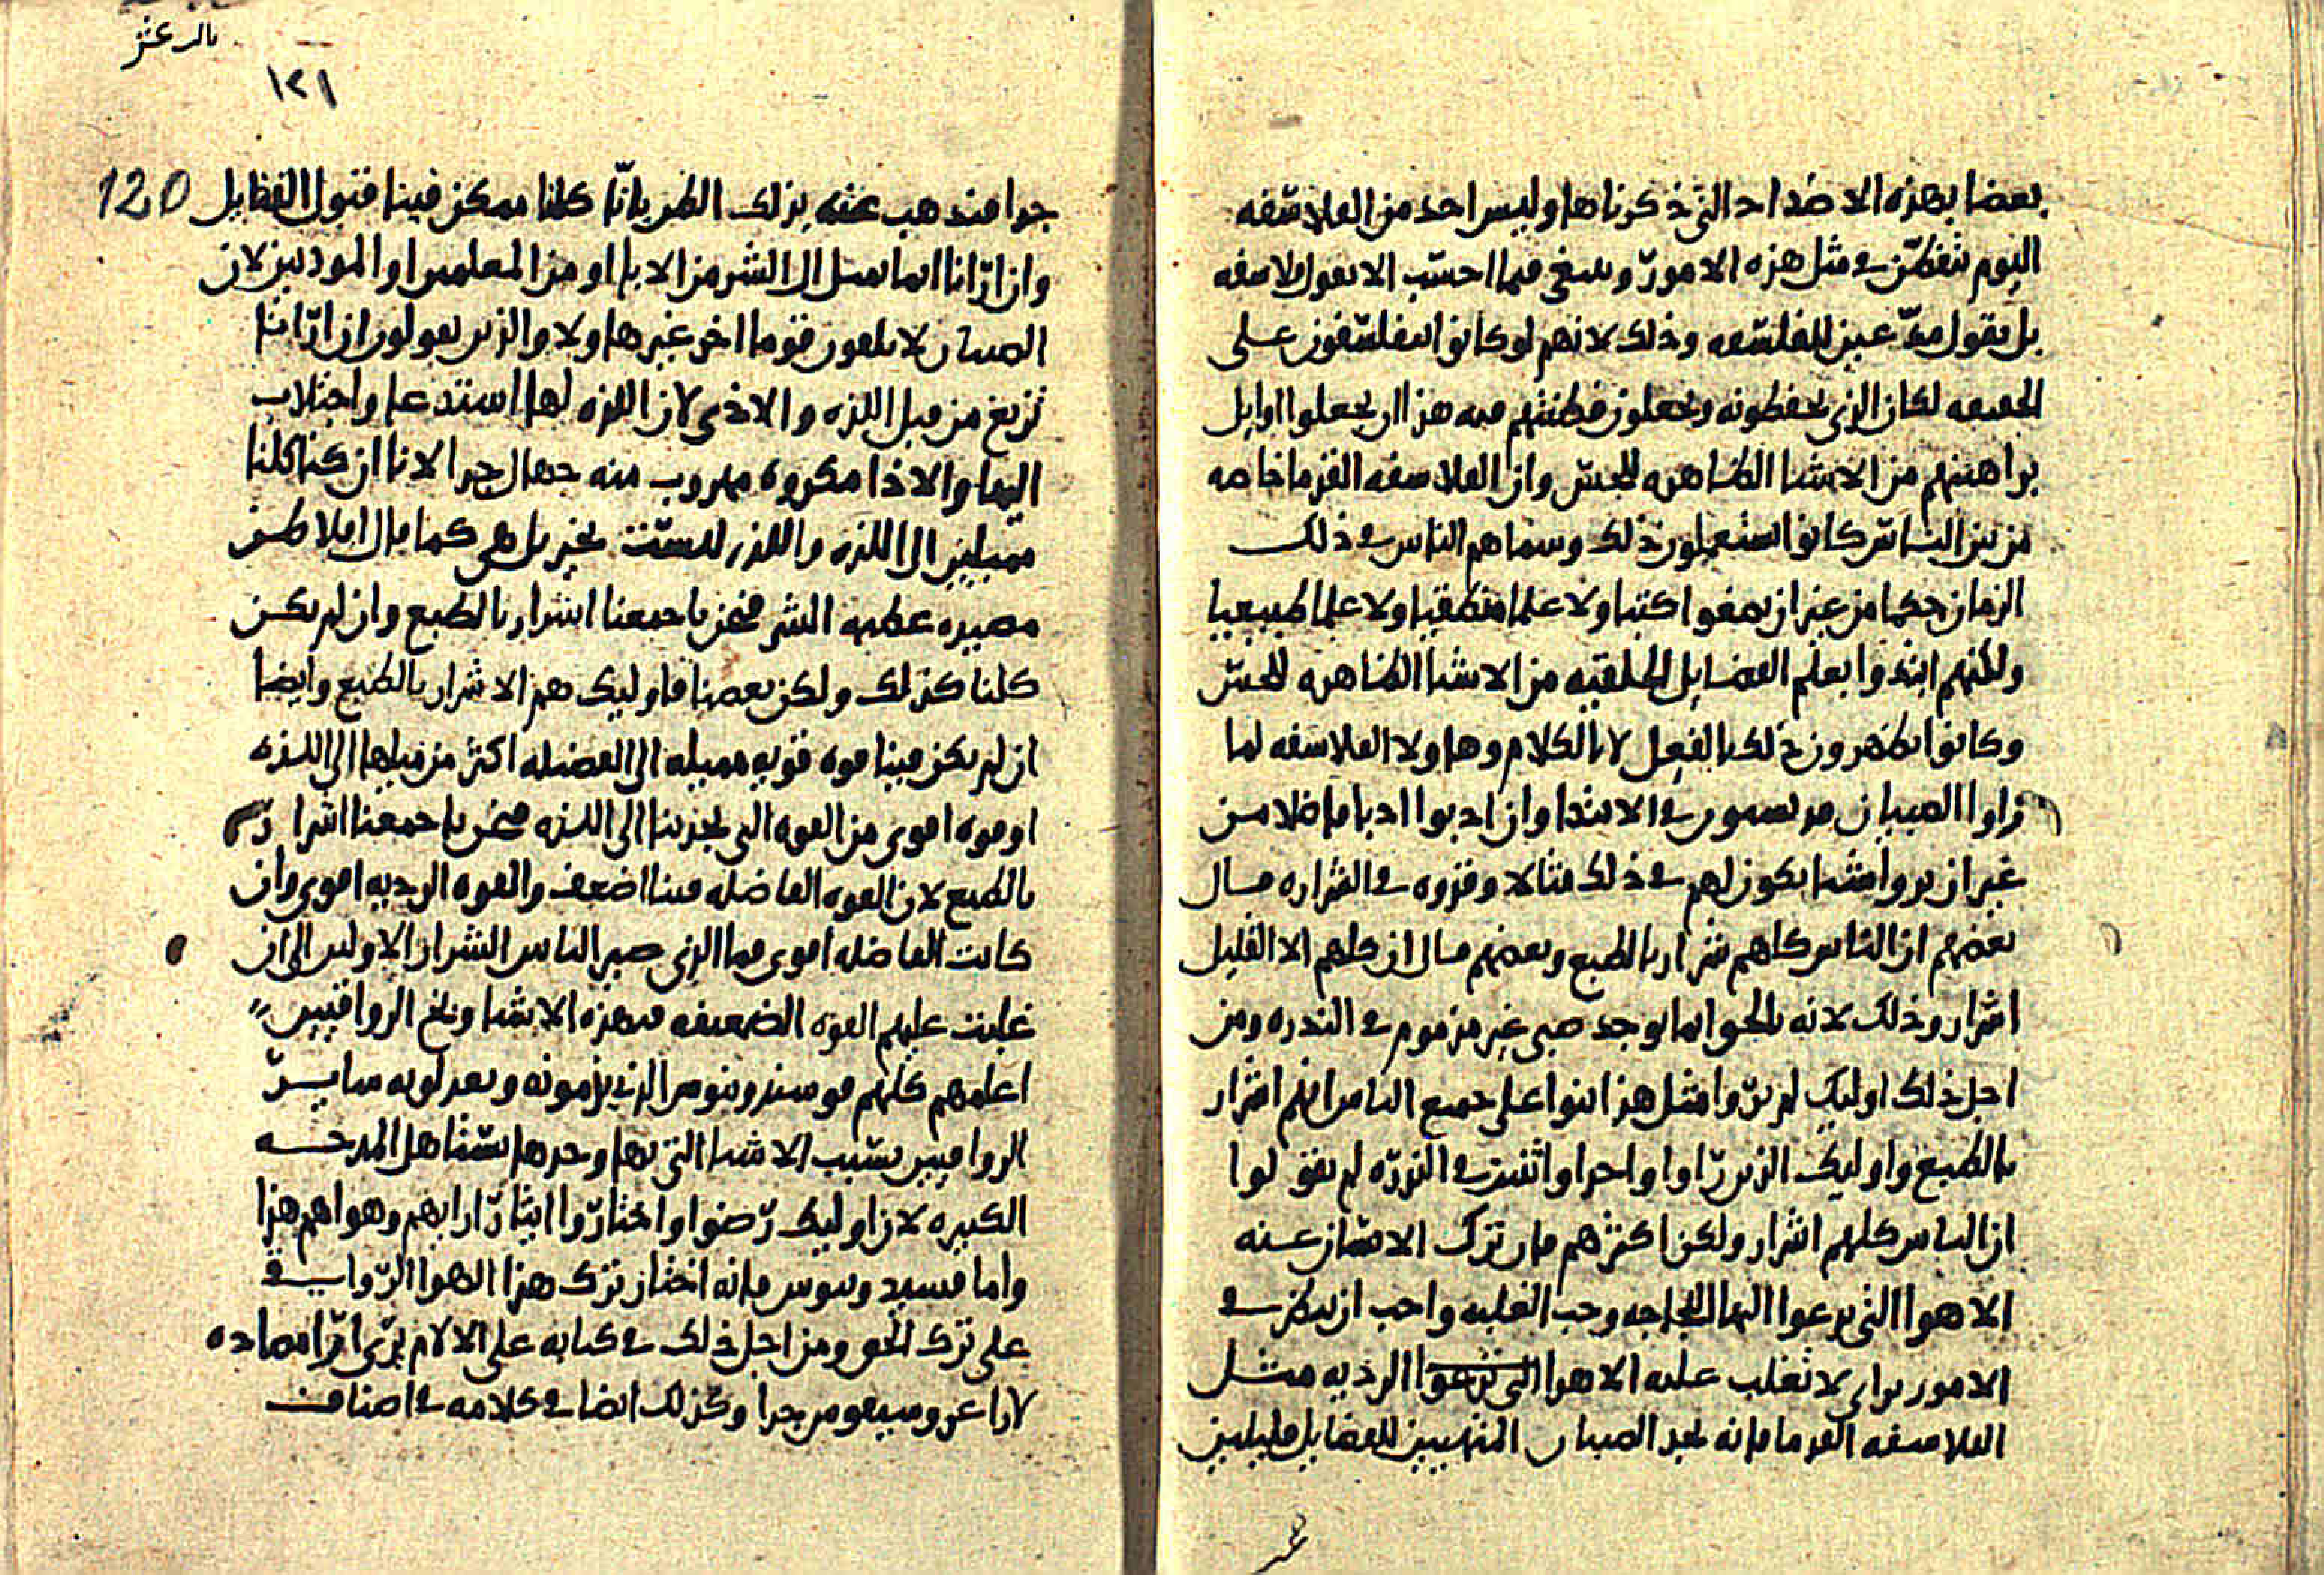 بعضا بهذه الاضداد التي ذكرناها وليس احد من الفلاسفه
اليوم تفطن في مثل هذه الامور وينبغي فيما احسب الا نقول فلاسفه
بل نقول مدعين للفلسفه وذلك لانهم لو كانوا يتفلسفون على
الحقيقه لكان الذي يحفظونه ويجعلون فطنتهم فيه هذا ان يجعلوا اوايل
براهينهم من الاشيا الظاهره للحس وان الفلاسفه القدما خاصه
من بين الناس كانوا يستعملون ذلك وسماهم الناس في ذلك
الزمان حكما من غير ان يضعوا كتبا ولا علما منطقيا ولا علما طبيعيا
ولكنهم ابتدوا بعلم الفضايل الخلقيه من الاشيا الظاهره للحس
وكانوا يظهرون ذلك بالفعل لا بالكلام وهاولا الفلاسفه لما
راوا الصبيان في الابتدا وان ادبوا ادبا فاضلا من
غير ان يروا شيا يكون لهم في ذلك مثالا وقدوه في الشراره فقال
بعضهم ان الناس كلهم شرار بالطبع وبعضهم قال ان كلهم الا القليل
اشرار وذلك لانه بالحق انما يوجد صبي غير مذموم في الندره ومن
اجل ذلك اوليك لم يروا مثل هذا بتوا على جميع الناس انهم اشرار
بالطبع واوليك الذين راوا واحدا واثنين في الندره لم يقولوا
ان الناس كلهم اشرار ولكن اكثرهم فان ترك الانسان عنه
الاهوا التي يدعوا اليها اللجاجه وحب الغلبه واحب ان يفكر في
الامور براي لا تغلب عليه الاهوا الرديه مثل
الفلاسفه القدما فانه يجد الصبيان المتهيين للفضايل قليلين
عر
بالرعثر
١٢١
120
جدا فتذهب عنه بذلك الظن باننا كلنا ممكن فينا قبول الفضايل
وان اراانا انما تميل الى الشر من الابا او من المعلمين او المودبين لان
الصبيان لا يلقون قوما اخر غيرها ولا والذين يقولون ان اراانا
تزيغ من قبل اللذه والاذى لان اللذه لها استدعا واجتلاب
اليها والاذا مكروه مهروب منه جهال جدا لانا ان كنا كلنا
ميالين الى اللذه واللذه ليست بخير بل هي كما قال افلاطون
مصيده عظيمه الشر فنحن باجمعنا اشرار بالطبع وان لم يكن
كلنا كذلك ولكن بعضنا فاوليك هم الاشرار بالطبع وايضا
ان لم يكن فينا قوه قويه مميله الى الفضيله اكثر من ميلها الى اللذه
او قوه اقوى من القوه التي تجذبنا الى اللذه فنحن باجمعنا اشرار
بالطبع لان القوه الفاضله فينا اضعف والقوه الرديه اقوى وان
كانت الفاضله اقوى فما الذي صير الناس الشرار الاولين الى ان
غلبت عليهم القوه الضعيفه فهذه الاشيا وبلغ الرواقيين
اعلمهم كلهم فوسيدونيوس الذي يذمونه ويعدلونه سايرٌ
الرواقيين بسبب الاشيا التي بها وحدها يستاهل المدحه
الكبيره لان اوليك رضوا واختاروا ايثار ارايهم وهواهم هذا
واما فسيدونيوس فانه اختار ترك هذا الهوا الرواقي
على ترك الحق ومن اجل ذلك في كتابه على الالام يرى اراا مضاده
لارا خروسيفوس جدا وكذلك ايضا في كلامه في اصناف